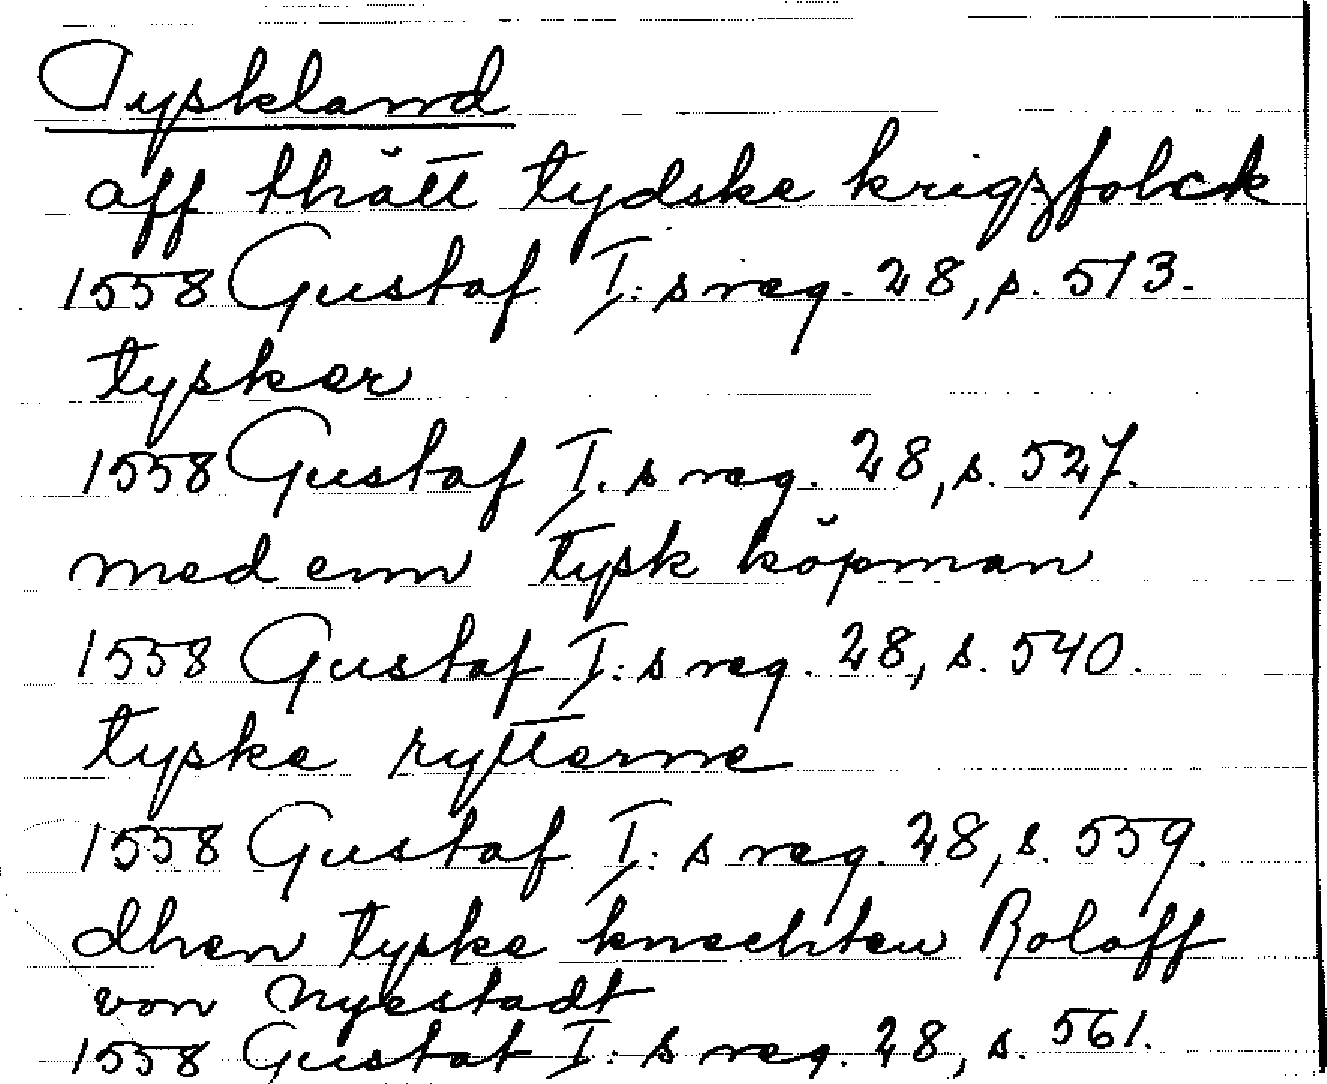 Tyskland
aff thätt tydske krigzfolck
1558 Gustaf I: s reg. 28, s. 513.
tysker
1558 Gustaf I. s reg. 28, s. 527.
med enn tysk köpman
1558 Gustaf I: s reg. 28, s. 540.
tyske rytterne
1558 Gustaf I: s reg. 28, s. 559.
dhen tyske knechten Roloff
von Nyestadt
1558 Gustaf I: s reg. 28, s. 561.